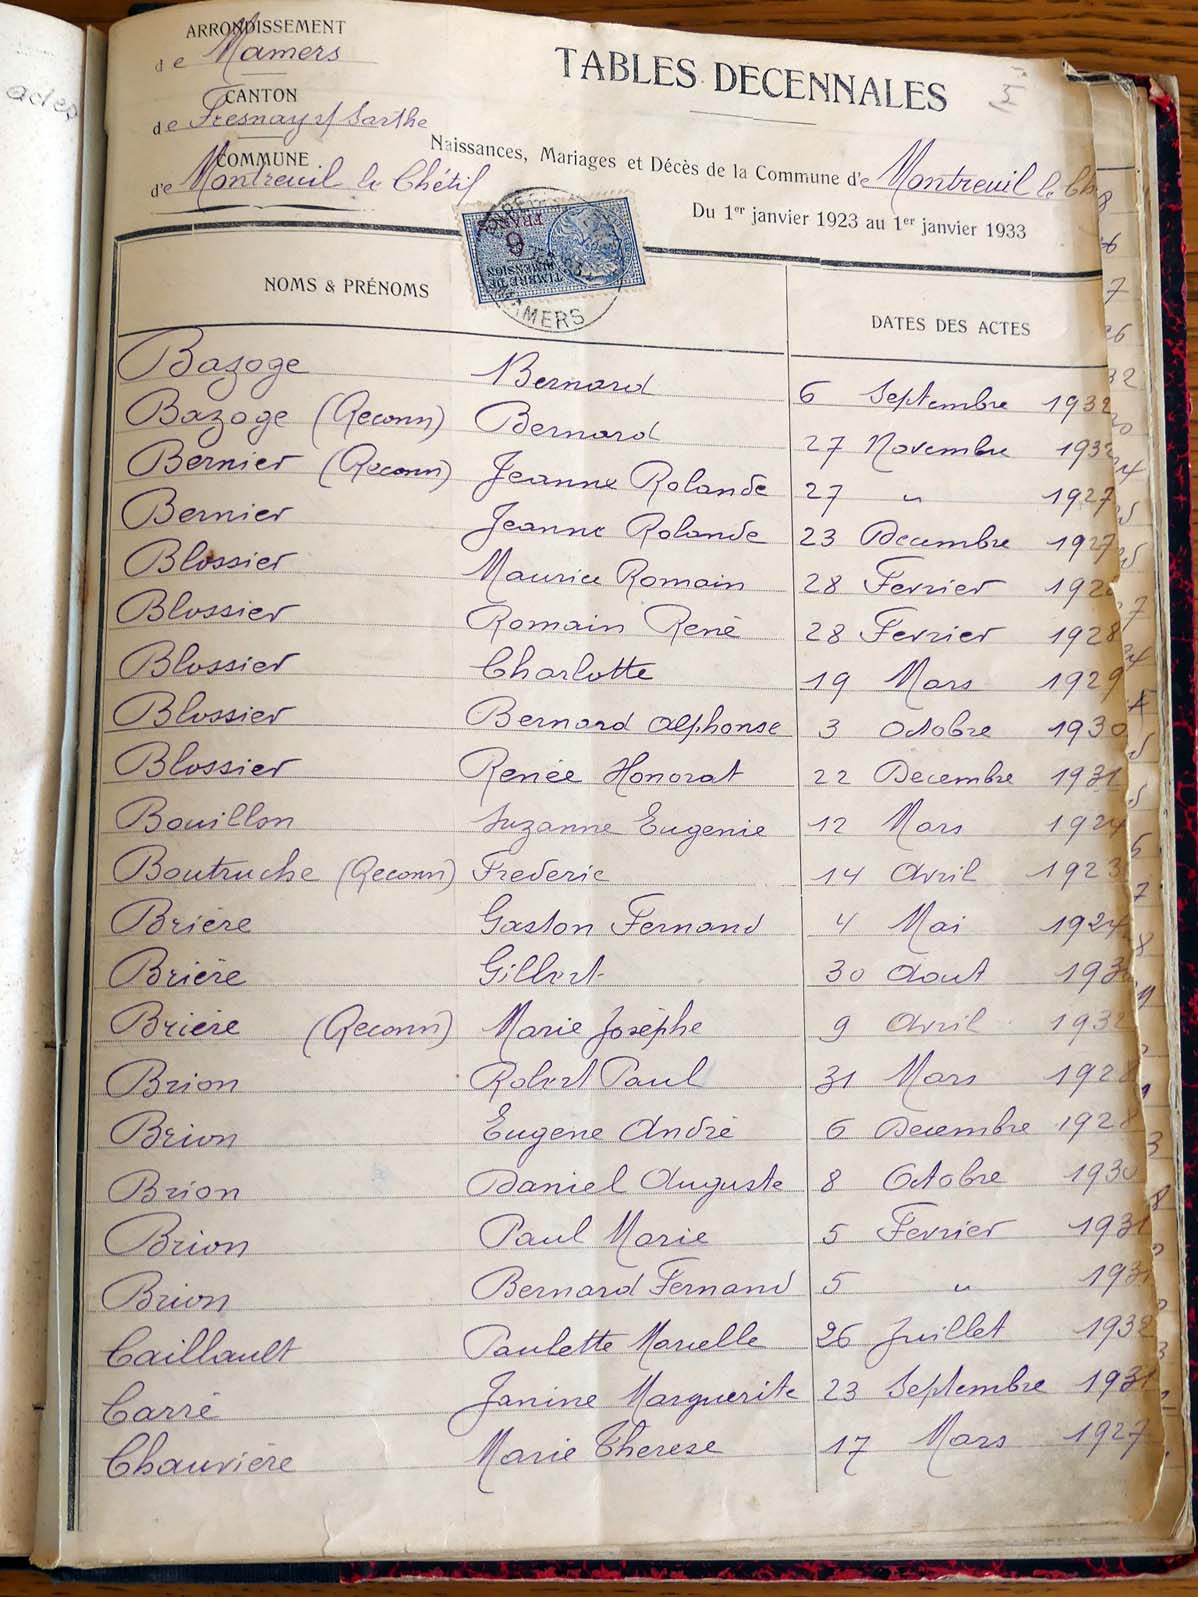 actes
ARRONDISSEMENT
de Mamers
CANTON
de Fresnay s/ Sarthe
COMMUNE
d'e Montreuil le Chétif
TABLES DECENNALES
5
Naissances, Mariages et Décès de la Commune d'e Montreuil le Ch
Du 1er janvier 1923 au 1er janvier 1933
TIMBRE DE DIMENSION
6 FRANCS
MAMERS
NOMS & PRÉNOMS DATES DES ACTES
Bazoge Bernard 6 Septembre 1932
Bazoge (Reconn) Bernard 27 Novembre 1932
Bernier (Reconn) Jeanne Rolande 27 " 1927
Bernier Jeanne Rolande 23 Decembre 1927
Blossier Maurice Romain 28 Fevrier 192
Blossier Romain René 28 Fevrier 1928
Blossier Charlotte 19 Mars 1929
Blossier Bernard Alphonse 3 Octobre 1930
Blossier Renée Honorat 22 Decembre 1931
Bouillon Suzanne Eugenie 12 Mars 1924
Boutruche (Reconn) Frederic 14 Avril 1923
Brière Gaston Fernand 4 Mai 1924
Brière Gilbert 30 Aout 193
Brière (Reconn) Marie Josèphe 9 Avril 1932
Brion Robert Paul 31 Mars 1928
Brion Eugene André 6 Decembre 1928
Brion Daniel Auguste 8 Octobre 1930
Brion Paul Marie 5 Fevrier 1931
Brion Bernard Fernand 5 " 193
Caillault Paulette Marcelle 26 Juillet 1932
Carré Janine Marguerite 23 Septembre 1931
Chauvière Marie Therese 17 Mars 1927